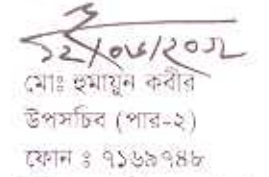 ১২/০৬/২০১২
মোঃ হুমায়ুন কবীর
উপসচিব (পার-২)
ফোন ঃ ৭১৬৯৭৪৮